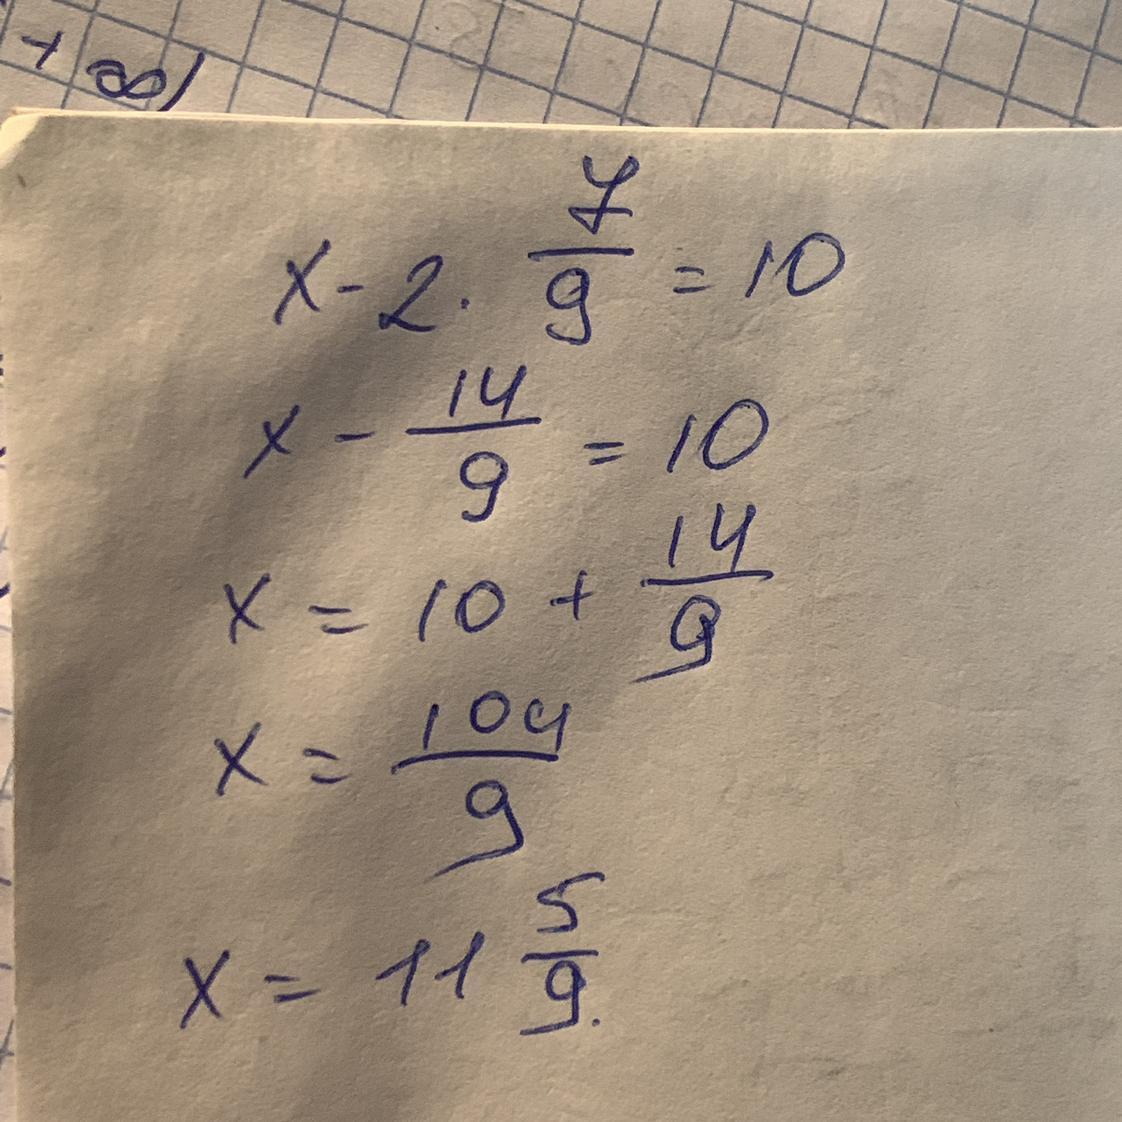 + ∞)
x - 2 · 7/9 = 10
x - 14/9 = 10
x = 10 + 14/9
x = 104/9
x = 11 5/9.